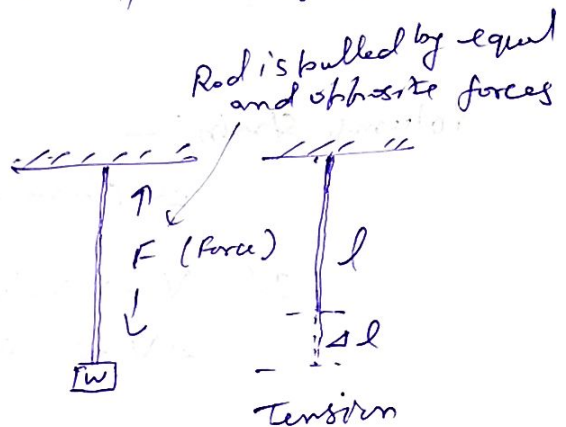 Rod is pulled by equal
and opposite forces
F (Force)
l
Δl
W
Tension